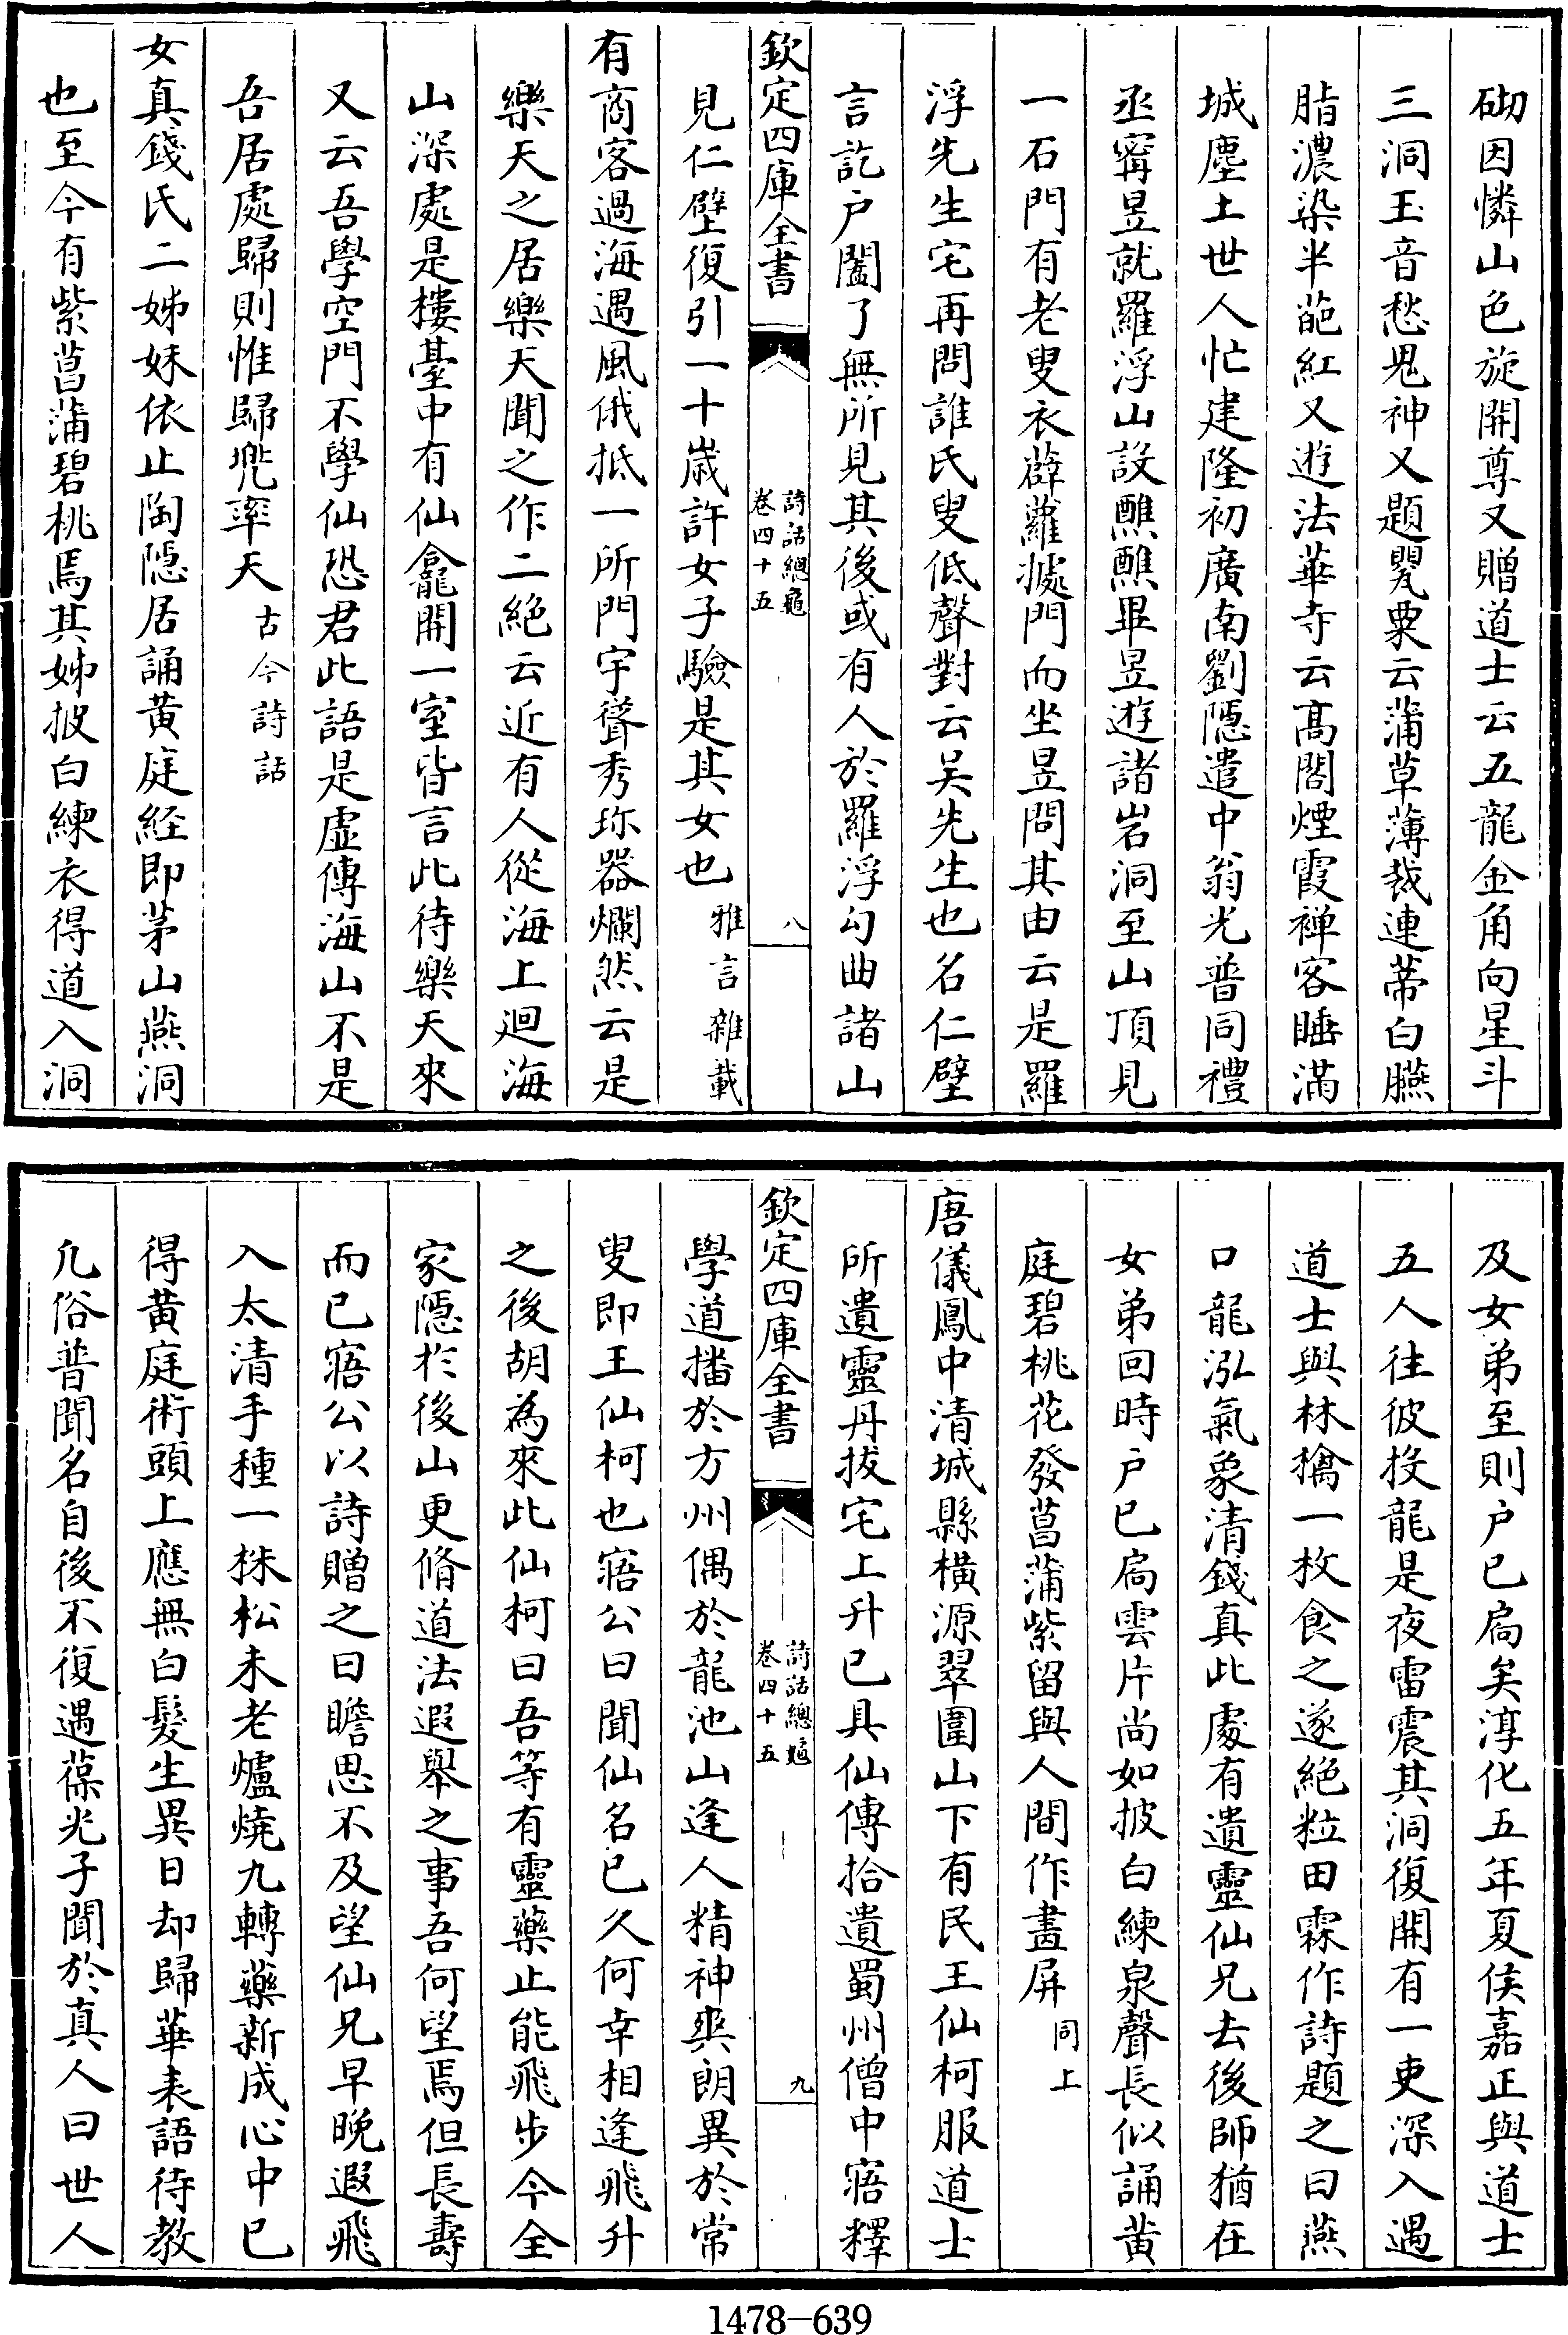 砌因憐山色旋開尊又贈道士云五龍金角向星斗
三洞玉音愁鬼神又題甖粟云蒲草薄裁連蒂白臙
脂濃染半葩紅又遊法華寺云髙閣煙霞禅客睡滿
城塵土世人忙建隆初廣南劉隱遣中翁光普同禮
丞甯昱就羅浮山設醮醮畢昱遊諸岩洞至山頂見
一石門有老叟衣薜蘿㨿門而坐昱問其由云是羅
浮先生宅再問誰氏叟低聲對云吴先生也名仁壁
言訖户闔了無所見其後或有人於羅浮勾曲諸山
欽定四庫全書
詩話總龜
卷四十五
八
見仁壁復引一十歲許女子驗是其女也雅言雜載
有商客過海遇風俄抵一所門宇聳秀珎器爛然云是
樂天之居樂天聞之作二絶云近有人從海上廻海
山深處是樓臺中有仙龕開一室皆言此待樂天來
又云吾學空門不學仙恐君此語是虚傳海山不是
吾居處歸則惟歸兠率天古今詩話
女真錢氏二姊妹依止陶隠居誦黄庭経即茅山燕洞
也至今有紫菖蒲碧桃焉其姊披白練衣得道入洞
及女弟至則户已扃矣淳化五年夏侯嘉正與道士
五人往彼投龍是夜雷震其洞復開有一吏深入遇
道士與林擒一枚食之遂絶粒田霖作詩題之曰燕
口龍泓氣象清錢真此處有遺靈仙兄去後師猶在
女弟回時户已扃雲片尚如披白練泉聲長似誦黄
庭碧桃花發菖蒲紫留與人間作畫屏同上
唐儀鳳中清城縣横源翠圍山下有民王仙柯服道士
所遺靈丹拔宅上升已具仙傳拾遺蜀州僧中寤釋
欽定四庫全書
詩話總龜
卷四十五
九
學道播於方州偶於龍池山逢人精神爽朗異於常
叟即王仙柯也寤公曰聞仙名已久何幸相逢飛升
之後胡為來此仙柯曰吾等有靈藥止能飛步今全
家隠於後山更脩道法遐舉之事吾何望焉但長壽
而已寤公以詩贈之曰瞻思不及望仙兄早晩遐飛
入太清手種一株松未老爐燒九轉藥新成心中已
得黄庭術頭上應無白髮生異日却歸華表語待教
凢俗普聞名自後不復遇葆光子聞於真人曰世人
1478-639